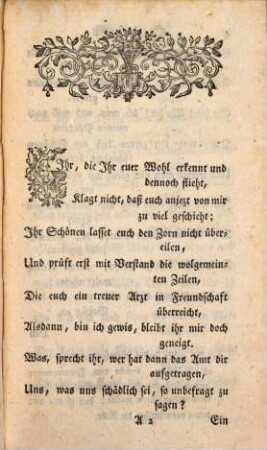 Ihr, die Ihr euer Wohl erkennt und
dennoch flieht,
Klagt nicht, daß euch anjezt von mir
zu viel geschieht;
Ihr Schönen lasset euch den Zorn nicht über-
eilen,
Und prüft erst mit Verstand die wolgemein-
ten Zeilen,
Die euch ein treuer Arzt in Freundschaft
überreicht,
Alsdann, bin ich gewis, bleibt ihr mir doch
geneigt.
Was, sprecht ihr, wer hat dann das Amt dir
aufgetragen,
Uns, was uns schädlich sei, so unbefragt zu
sagen?
A 2 Ein